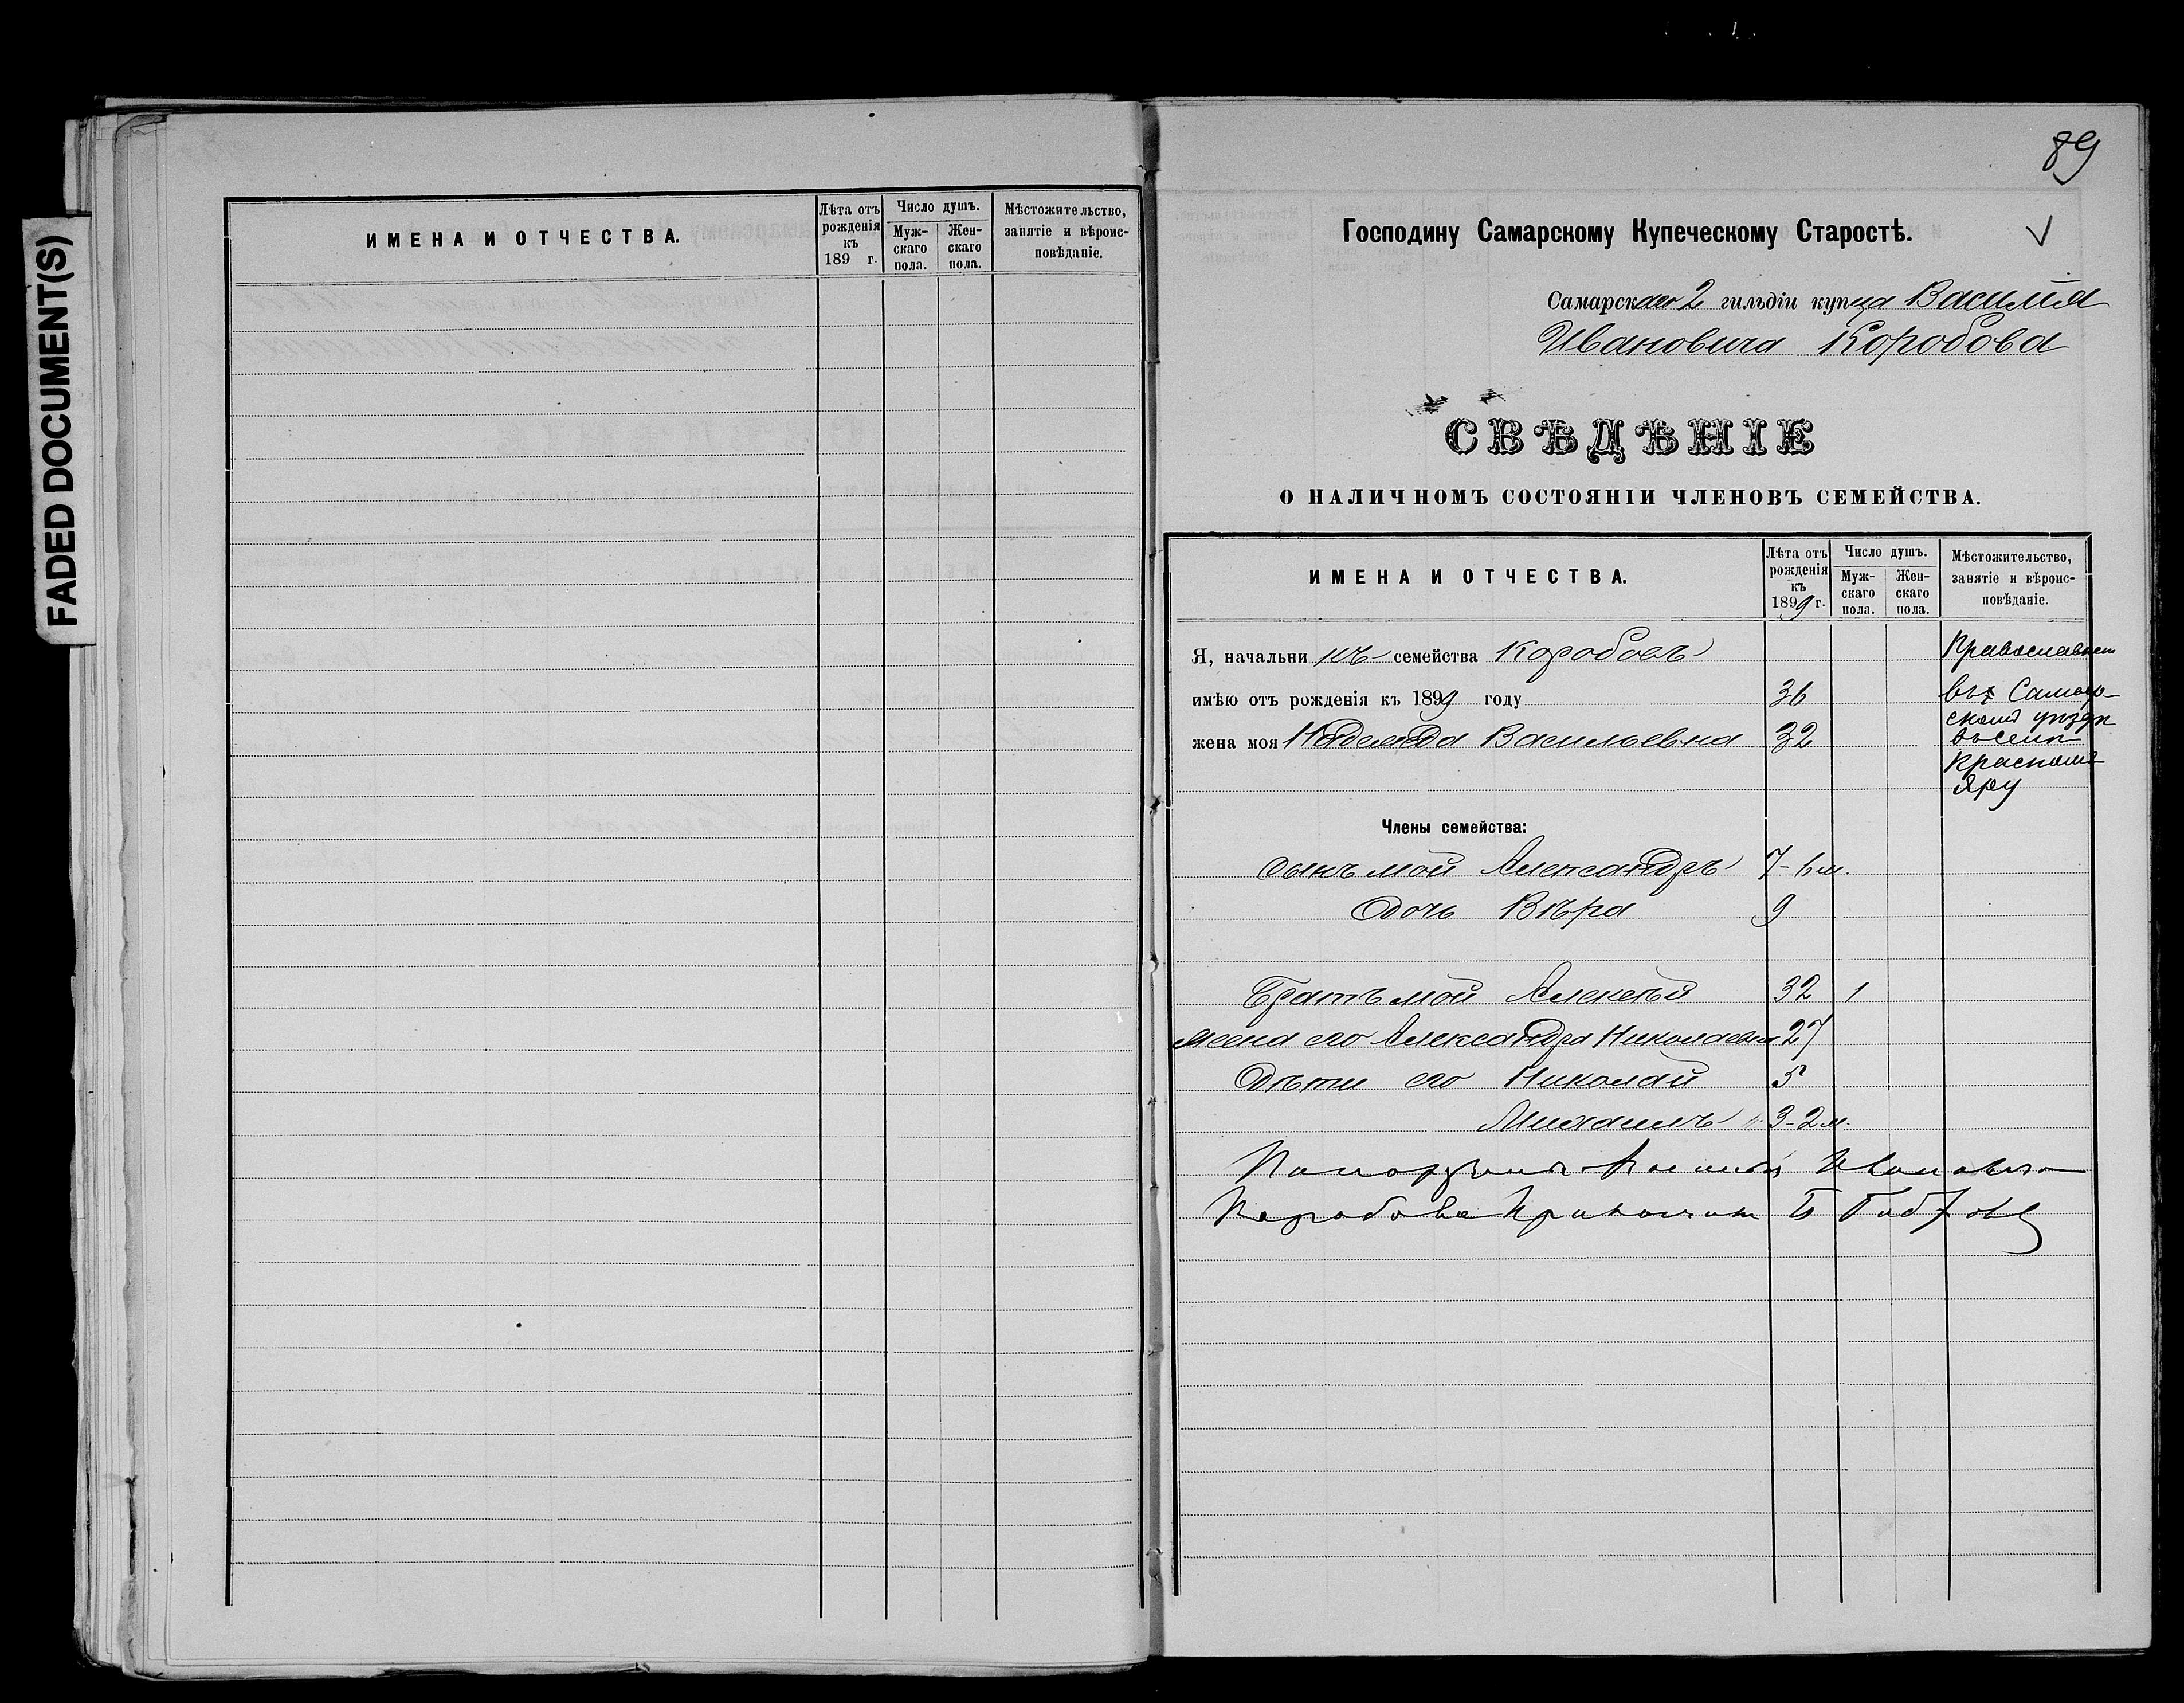 FADED DOCUMENT(S)
ИМЕНА И ОТЧЕСТВА.
Лѣта отъ рожденія къ 189 г.
Число душъ.
Муж-скаго пола.
Жен-скаго пола.
Мѣстожительство, занятіе и вѣроис-повѣданіе.
89
Господину Самарскому Купеческому Старостѣ.
Самарскаго 2 гильдіи купца Василія
Ивановича Коробова
СВѢДѢНІЕ
О НАЛИЧНОМЪ СОСТОЯНІИ ЧЛЕНОВЪ СЕМЕЙСТВА.
ИМЕНА И ОТЧЕСТВА.
Лѣта отъ рожденія къ 1899 г.
Число душъ.
Муж-скаго пола.
Жен-скаго пола.
Мѣстожительство, занятіе и вѣроис-повѣданіе.
Я, начальникъ семейства Коробовъ
имѣю отъ рожденія къ 1899 году 36
жена моя Надежда Васильевна 32
въ Самар-
скомъ уѣздѣ
въ селѣ
Красномъ
Яру
Члены семейства:
сынъ мой Александръ 7-6 м.
дочь Вѣра 9
Братъ мой Алексѣй 32 1
жена его Александра Николаевна 27
Дѣти его Николай 5
Михаилъ 3-2 м.
Ивановича
Коробова